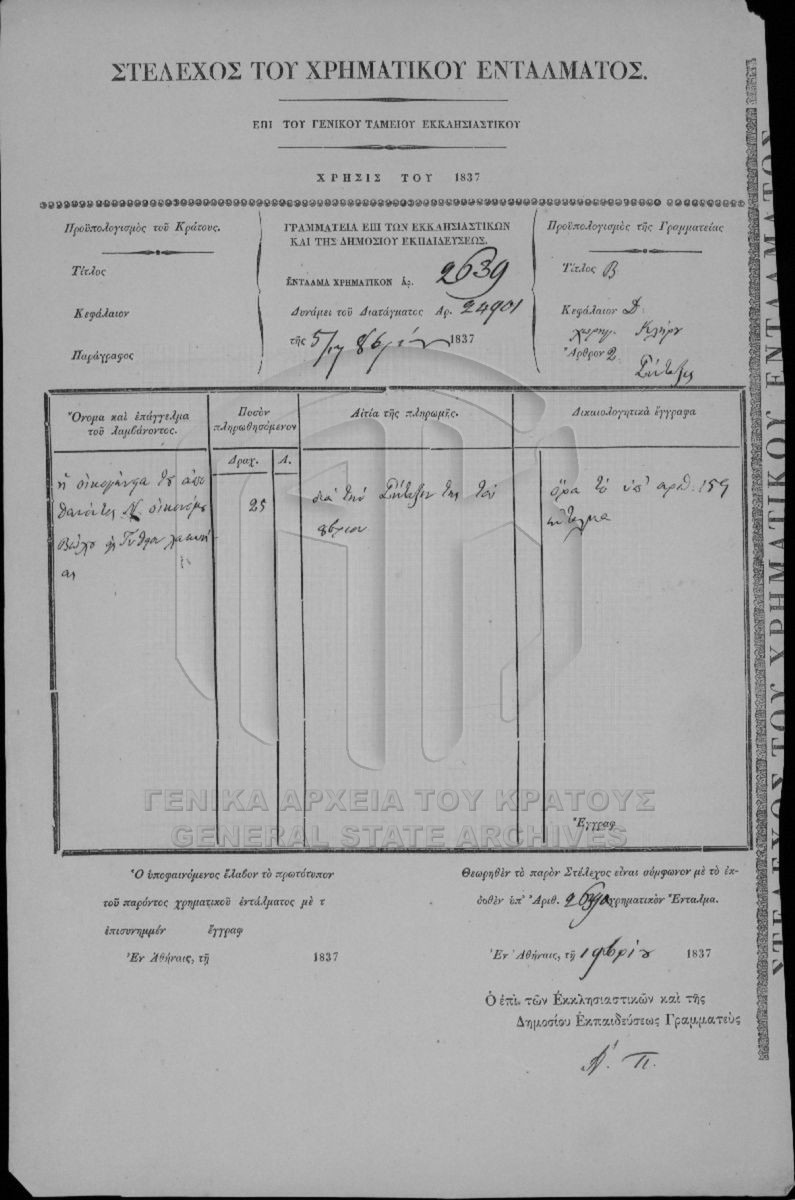 ΣΤΕΛΕΧΟΣ ΤΟΥ ΧΡΗΜΑΤΙΚΟΥ ΕΝΤΑΛΜΑΤΟΣ.
ΕΠΙ ΤΟΥ ΓΕΝΙΚΟΥ ΤΑΜΕΙΟΥ ΕΚΚΛΗΣΙΑΣΤΙΚΟΥ
ΧΡΗΣΙΣ ΤΟΥ 1837
Προϋπολογισμὸς τοῦ Κράτους.
Τίτλος
Κεφάλαιον
Παράγραφος
ΓΡΑΜΜΑΤΕΙΑ ΕΠΙ ΤΩΝ ΕΚΚΛΗΣΙΑΣΤΙΚΩΝ
ΚΑΙ ΤΗΣ ΔΗΜΟΣΙΟΥ ΕΚΠΑΙΔΕΥΣΕΩΣ.
ΕΝΤΑΛΜΑ ΧΡΗΜΑΤΙΚΟΝ Ἀρ. 2639
Δυνάμει τοῦ Διατάγματος Αρ. 24901
τῆς 5/17 8βρίου 1837
Προϋπολογισμὸς τῆς Γραμματείας
Τίτλος Β
Κεφάλαιον Δ.
χορηγ. Κλήρου
Ἄρθρον 2.
Σύνταξις
Ὄνομα καὶ ἐπάγγελμα
τοῦ λαμβάνοντος.
Ποσὸν
πληρωθησόμενον
Δραχ. Λ.
Αἰτία τῆς πληρωμῆς.
Δικαιολογητικὰ ἔγγραφα
ἡ οἰκογένεια τοῦ ἀπο
θανόντος Ν. οἰκονόμου
25
διὰ τὴν Σύνταξιν της τοῦ
8βρίου
ὅρα τὸ ὑπ' ἀριθ. 159
ἔνταλμα
Ἔγγραφ
ΓΕΝΙΚΑ ΑΡΧΕΙΑ ΤΟΥ ΚΡΑΤΟΥΣ
GENERAL STATE ARCHIVES
Ὁ ὑποφαινόμενος ἔλαβον τὸ πρωτότυπον
τοῦ παρόντος χρηματικοῦ ἐντάλματος μὲ τ
ἐπισυνημμέν ἔγγραφ
Ἐν Ἀθήναις, τῇ 1837
Θεωρηθὲν τὸ παρὸν Στέλεχος εἶναι σύμφωνον μὲ τὸ ἐκ-
δοθὲν ὑπ' Ἀριθ. χρηματικὸν Ἔνταλμα.
Ἐν Ἀθήναις, τῇ 1837
Ὁ ἐπὶ τῶν Ἐκκλησιαστικῶν καὶ τῆς
Δημοσίου Ἐκπαιδεύσεως Γραμματεὺς
ΣΤΕΛΕΧΟΣ ΤΟΥ ΧΡΗΜΑΤΙΚΟΥ ΕΝΤΑΛΜΑΤΟΣ